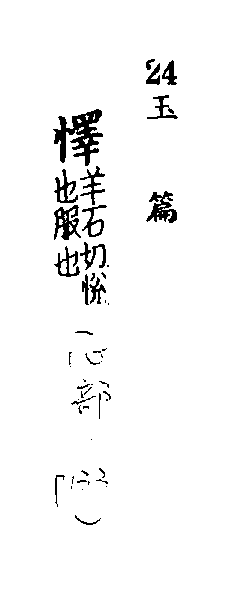 24
玉篇
懌
羊石切悅
也服也
(心部.
)